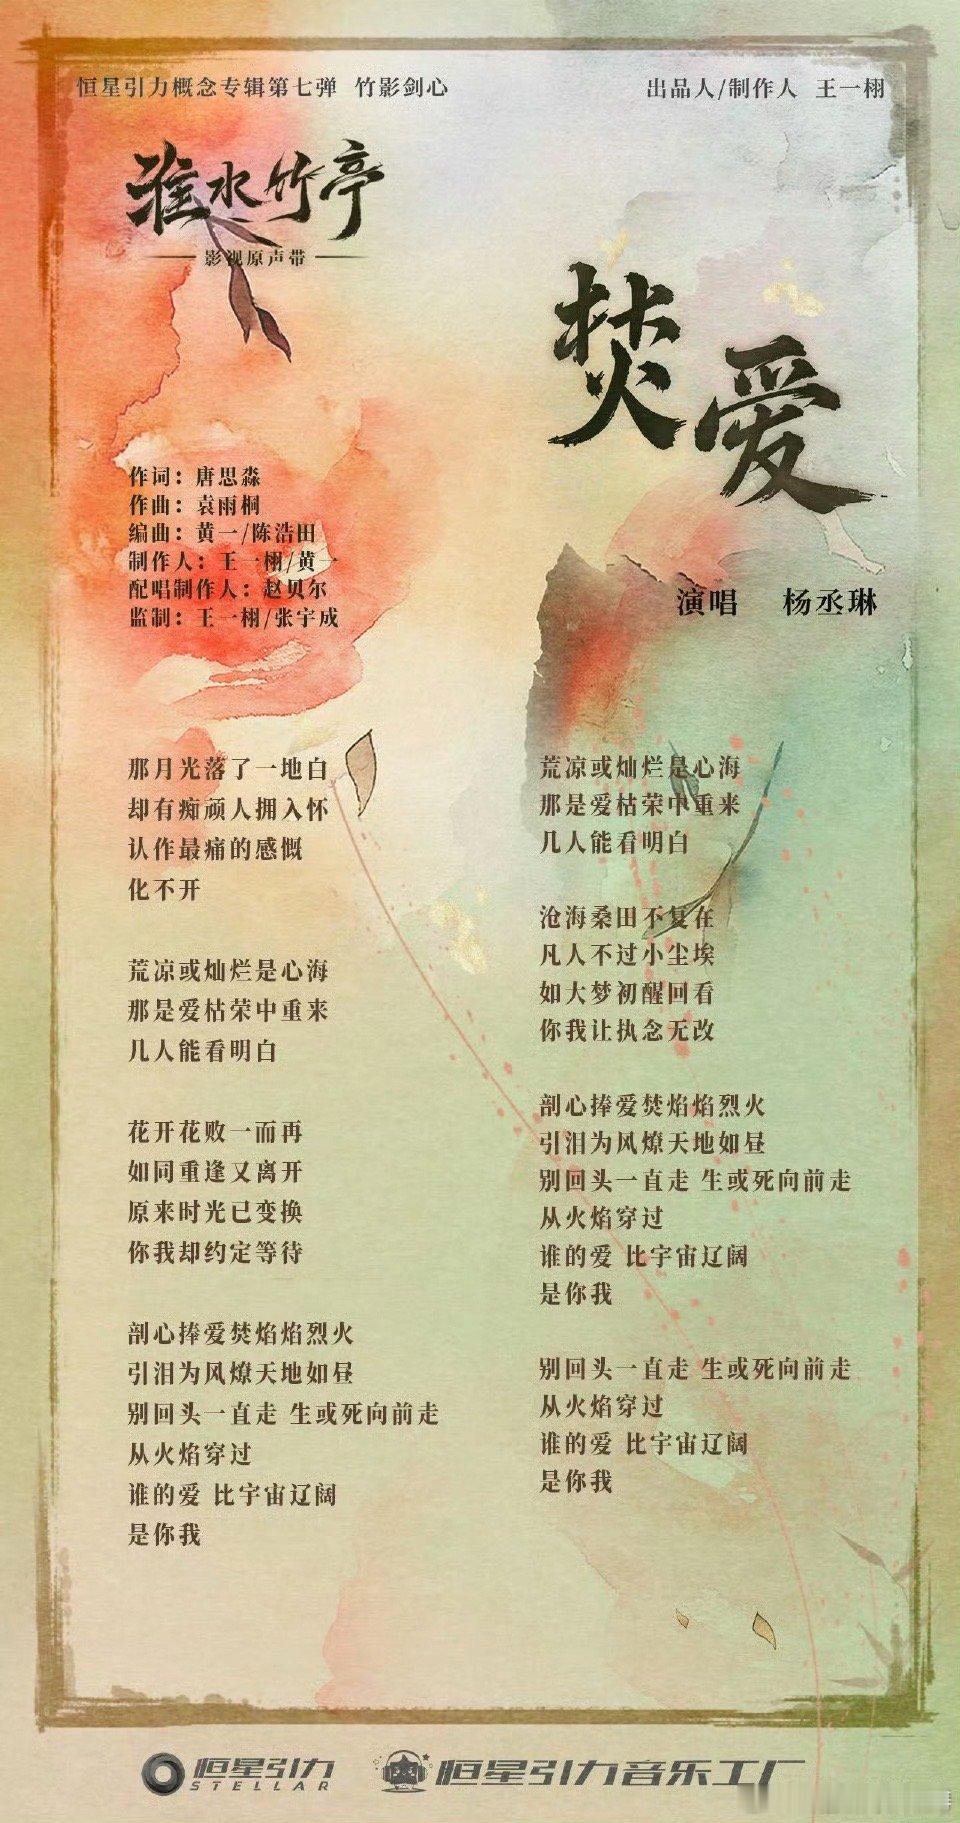 恒星引力概念专辑第七弹 竹影剑心
出品人/制作人 王一栩
淮水竹亭
影视原声带
焚爱
作词：唐思淼
作曲：袁雨桐
编曲：黄一/陈浩田
制作人：王一栩/黄一
配唱制作人：赵贝尔
监制：王一栩/张宇成
演唱 杨丞琳
那月光落了一地白
却有痴顽人拥入怀
认作最痛的感慨
化不开
荒凉或灿烂是心海
那是爱枯荣中重来
几人能看明白
花开花败一而再
如同重逢又离开
原来时光已变换
你我却约定等待
剖心捧爱焚焰焰烈火
引泪为风燎天地如昼
别回头一直走 生或死向前走
从火焰穿过
谁的爱 比宇宙辽阔
是你我
荒凉或灿烂是心海
那是爱枯荣中重来
几人能看明白
沧海桑田不复在
凡人不过小尘埃
如大梦初醒回看
你我让执念无改
剖心捧爱焚焰焰烈火
引泪为风燎天地如昼
别回头一直走 生或死向前走
从火焰穿过
谁的爱 比宇宙辽阔
是你我
别回头一直走 生或死向前走
从火焰穿过
谁的爱 比宇宙辽阔
是你我
恒星引力
STELLAR
恒星引力音乐工厂